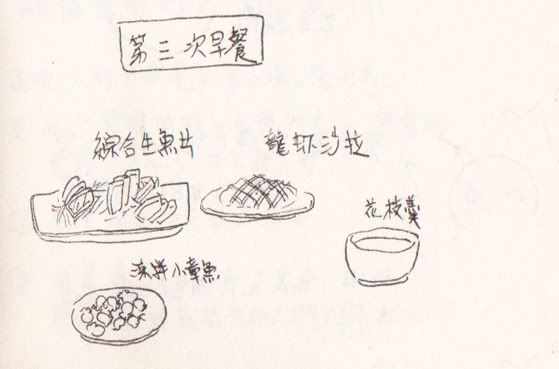 第三次早餐
綜合生魚片
龍虾沙拉
花枝羹
涼拌小章魚